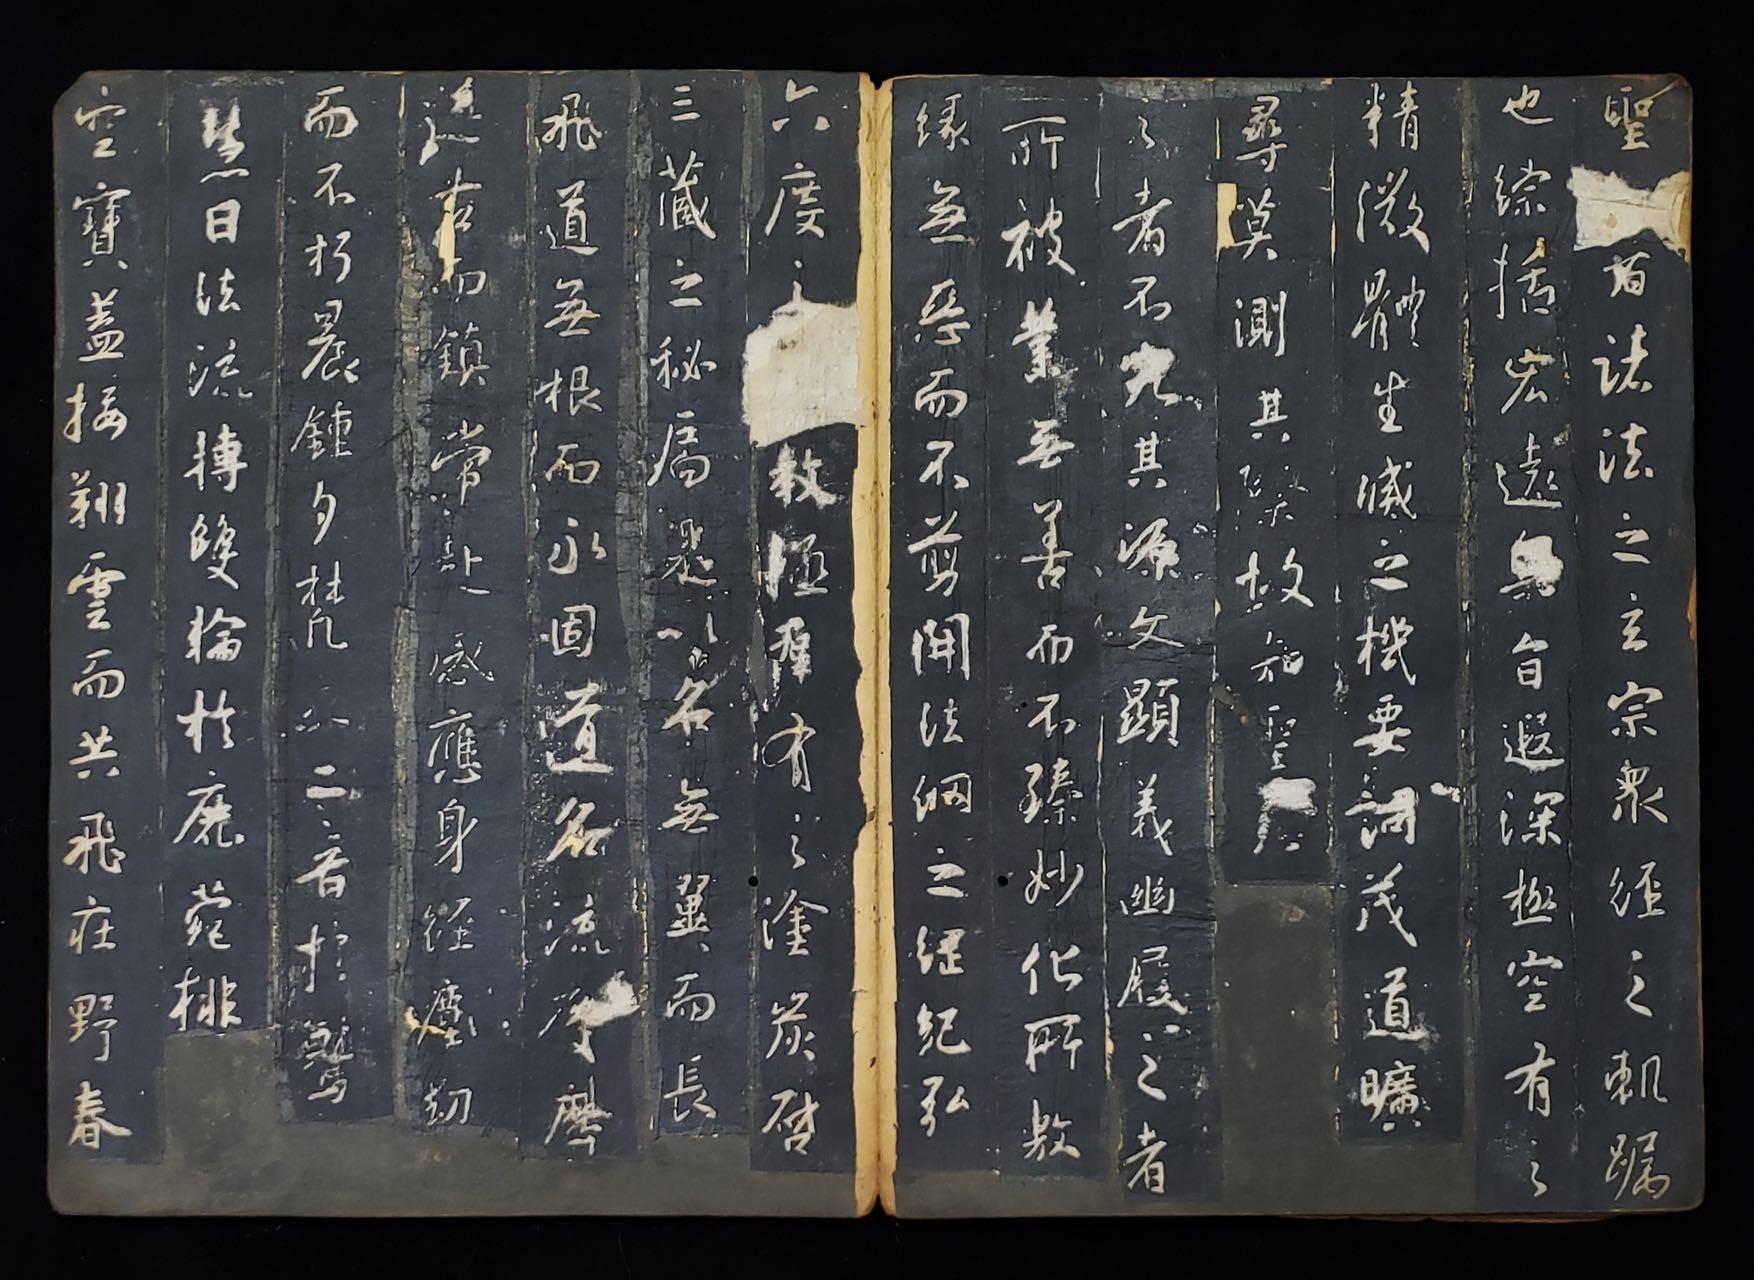 聖者諸法之玄宗衆經之軌躅
也綜括宏遠奧旨遐深極空有之
精微體生滅之機要詞茂道曠
尋莫測其際故知聖
之者不究其源文顯義幽履之者
所被業无善而不臻妙化所敷
緣無惡而不剪開法網之綱紀弘
六度之教拯群有之塗炭啓
三藏之秘扃是以名無翼而長
飛道無根而永固道名流慶歷
遂古而鎮常赴感應身經塵劫
而不朽晨鍾夕梵交二音於鷲
慧日法流轉雙輪於鹿菀排
空寶蓋接翔雲而共飛莊野春